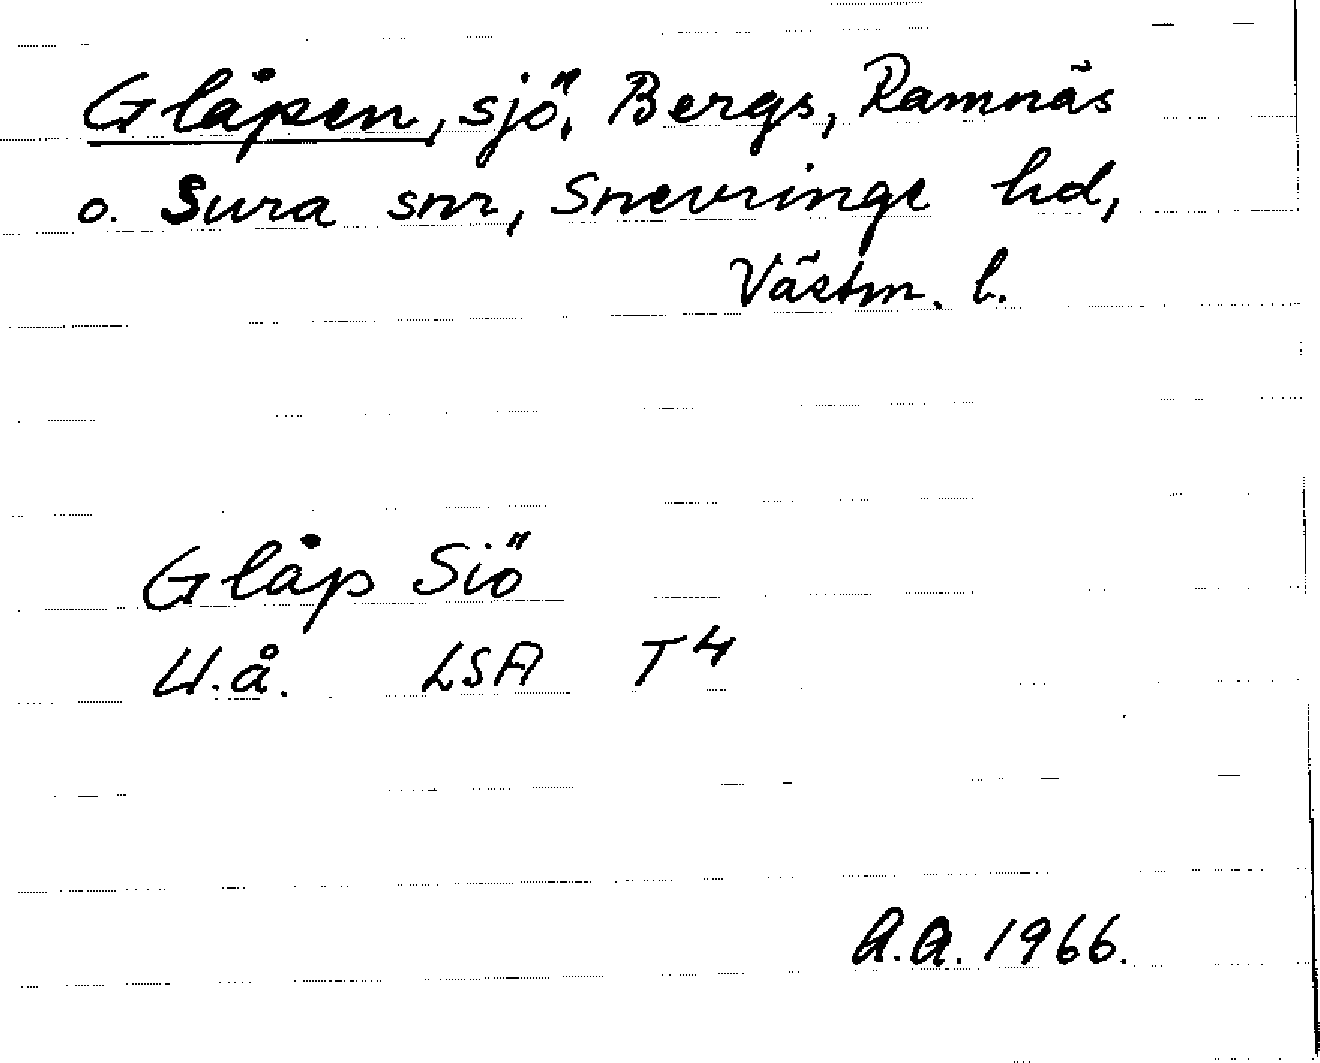 Glåpen, sjö, Bergs, Ramnäs
o. Sura snr, Snevringe hd,
Västm. l.
Glåp Siö
U.å. LSA T 4
A.A. 1966.